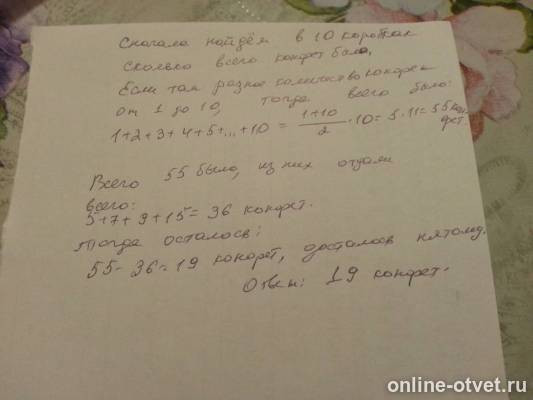 Сначала найдём в 10 коробках
сколько всего конфет было,
Если там разное количество конфет
от 1 до 10, тогда всего было:
1+2+3+4+5+...+10 = \frac{1+10}{2} · 10 = 5·11 = 55 кон
фет
Всего 55 было, из них отдали
всего:
5+7+9+15=36 конфет.
Тогда осталось:
55-36=19 конфет, досталось пятому.
Ответ: 19 конфет.
online-otvet.ru